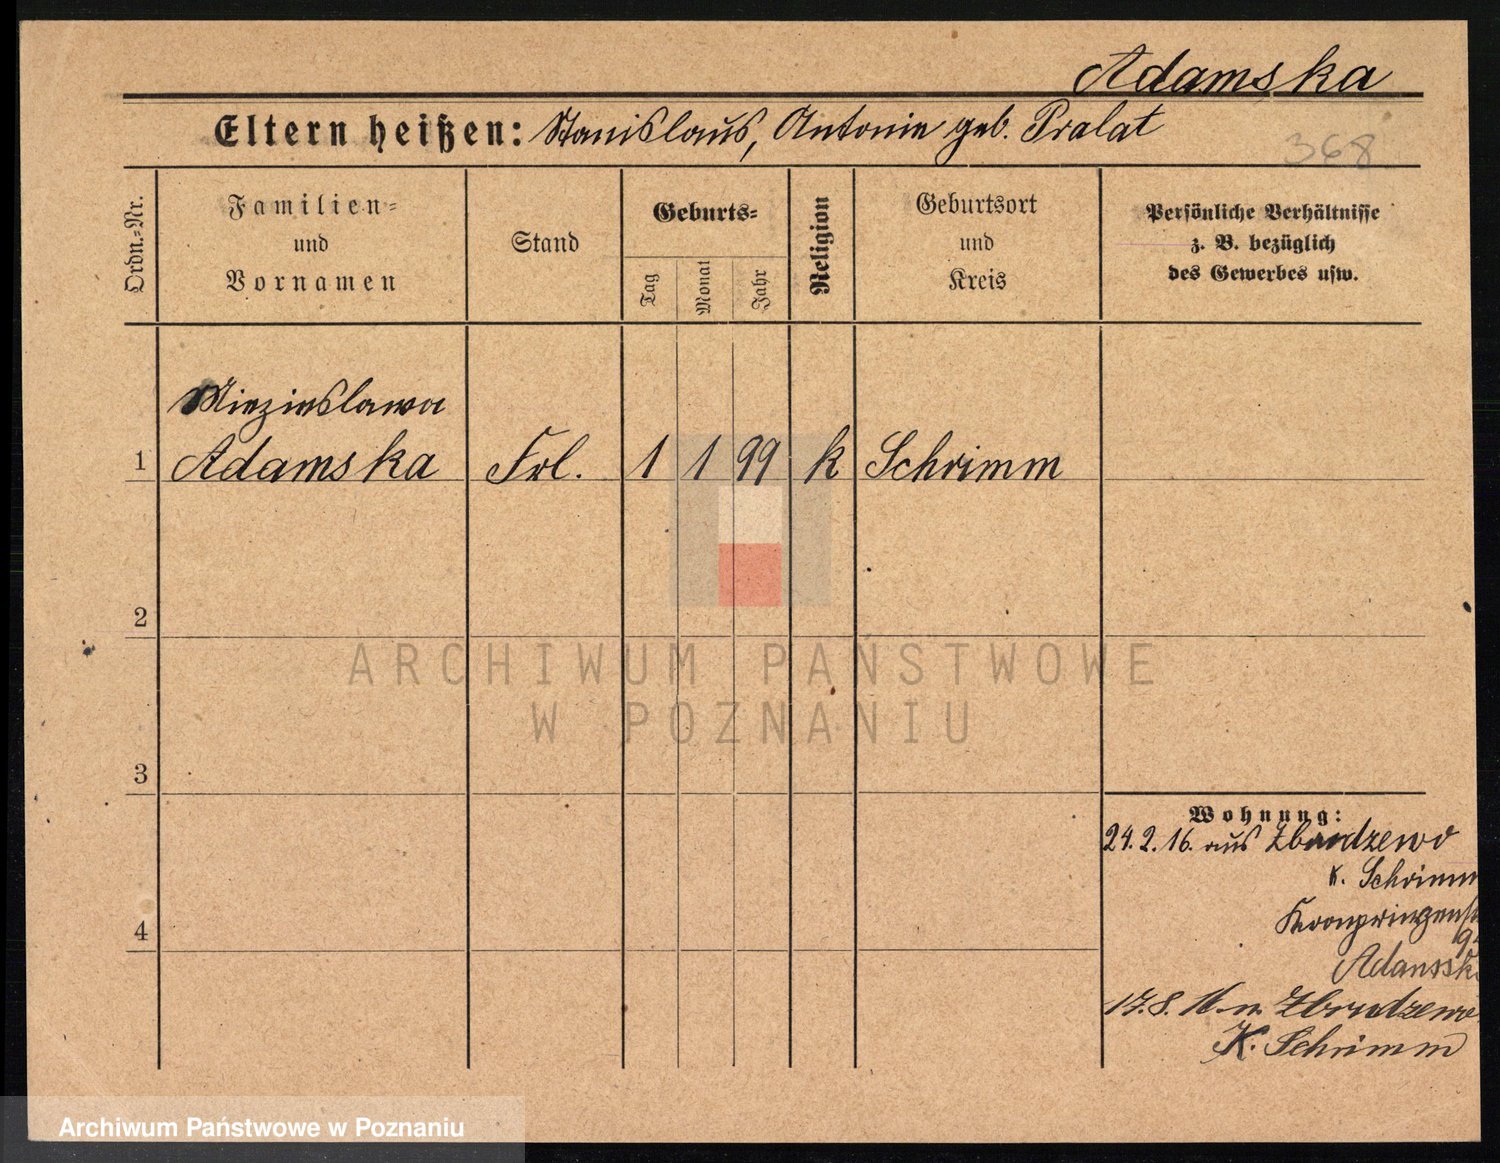 Adamska
Eltern heißen: Stanislaus, Antonie geb. Pralat
368
Ordn.-Nr.
Familien-
und
Vornamen
Stand
Geburts-
Tag
Monat
Jahr
Religion
Geburtsort
und
Kreis
Persönliche Verhältnisse
z. B. bezüglich
des Gewerbes usw.
Miezieslawa
1 Adamska Frl. 1 1 99 k Schrimm
2
ARCHIWUM PAŃSTWOWE
W POZNANIU
3
Wohnung:
24. 2. 16. aus Zbrudzewo
K. Schrimm
Kronprinzenst
Adamsk
17. 8. 16. n. Zbrudzewo
K. Schrimm
4
Archiwum Państwowe w Poznaniu